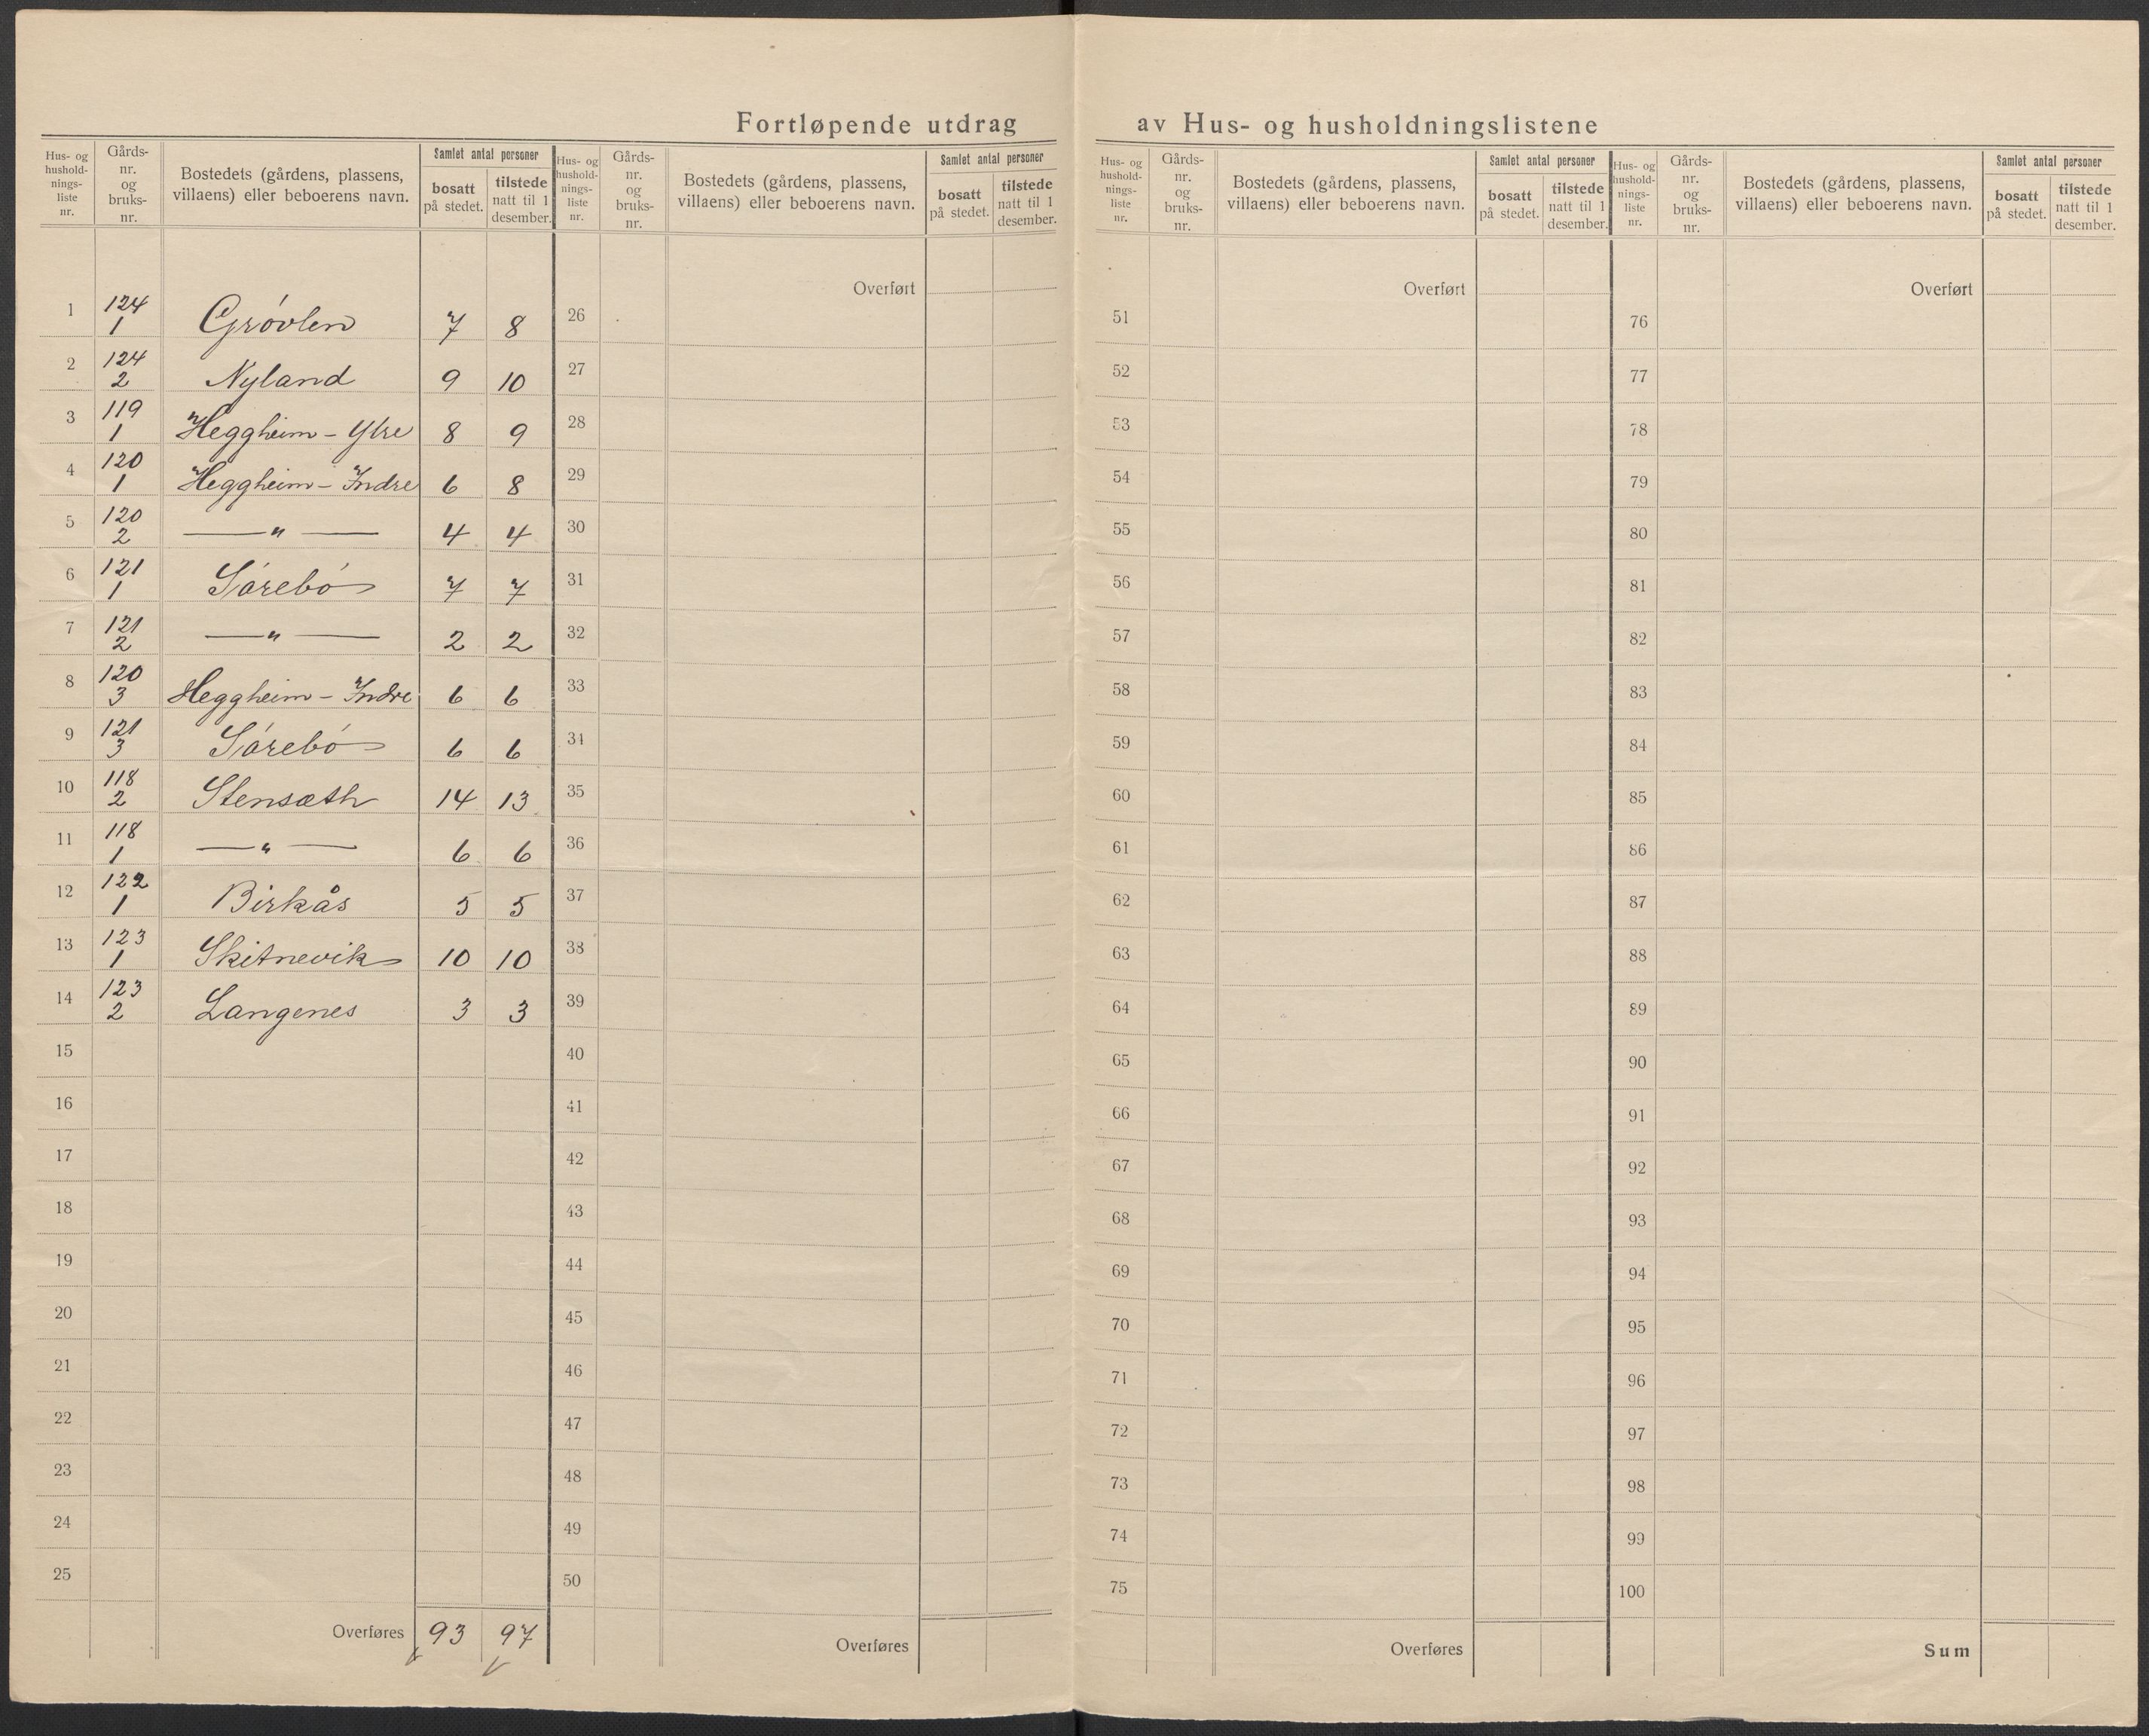 Fortløpende utdrag av Hus- og husholdningslistene
Hus- og hushold- nings- liste nr.
Gårds- nr. og bruks- nr.
Bostedets (gårdens, plassens, villaens) eller beboerens navn.
Samlet antal personer
bosatt på stedet.
tilstede natt til 1 desember.
1 124 1 Gróvlen 7 8
2 124 2 Nyland 9 10
3 119 1 Heggheim - Ytre 8 9
4 120 1 Heggheim - Indre 6 8
5 120 2 — " — 4 4
6 121 1 Sórebó 7 7
7 121 2 — " — 2 2
8 120 3 Heggheim - Indre 6 6
9 121 3 Sórebó 6 6
10 118 2 Stensæth 14 13
11 118 1 — " — 6 6
12 122 1 Birkås 5 5
13 123 1 Skitnevik 10 10
14 123 2 Langenes 3 3
15
16
17
18
19
20
21
22
23
24
25
Overføres 93 97
Hus- og hushold- nings- liste nr.
Gårds- nr. og bruks- nr.
Bostedets (gårdens, plassens, villaens) eller beboerens navn.
Samlet antal personer
bosatt på stedet.
tilstede natt til 1 desember.
Overført
26
27
28
29
30
31
32
33
34
35
36
37
38
39
40
41
42
43
44
45
46
47
48
49
50
Overføres
Hus- og hushold- nings- liste nr.
Gårds- nr. og bruks- nr.
Bostedets (gårdens, plassens, villaens) eller beboerens navn.
Samlet antal personer
bosatt på stedet.
tilstede natt til 1 desember.
Overført
51
52
53
54
55
56
57
58
59
60
61
62
63
64
65
66
67
68
69
70
71
72
73
74
75
Overføres
Hus- og hushold- nings- liste nr.
Gårds- nr. og bruks- nr.
Bostedets (gårdens, plassens, villaens) eller beboerens navn.
Samlet antal personer
bosatt på stedet.
tilstede natt til 1 desember.
Overført
76
77
78
79
80
81
82
83
84
85
86
87
88
89
90
91
92
93
94
95
96
97
98
99
100
Sum